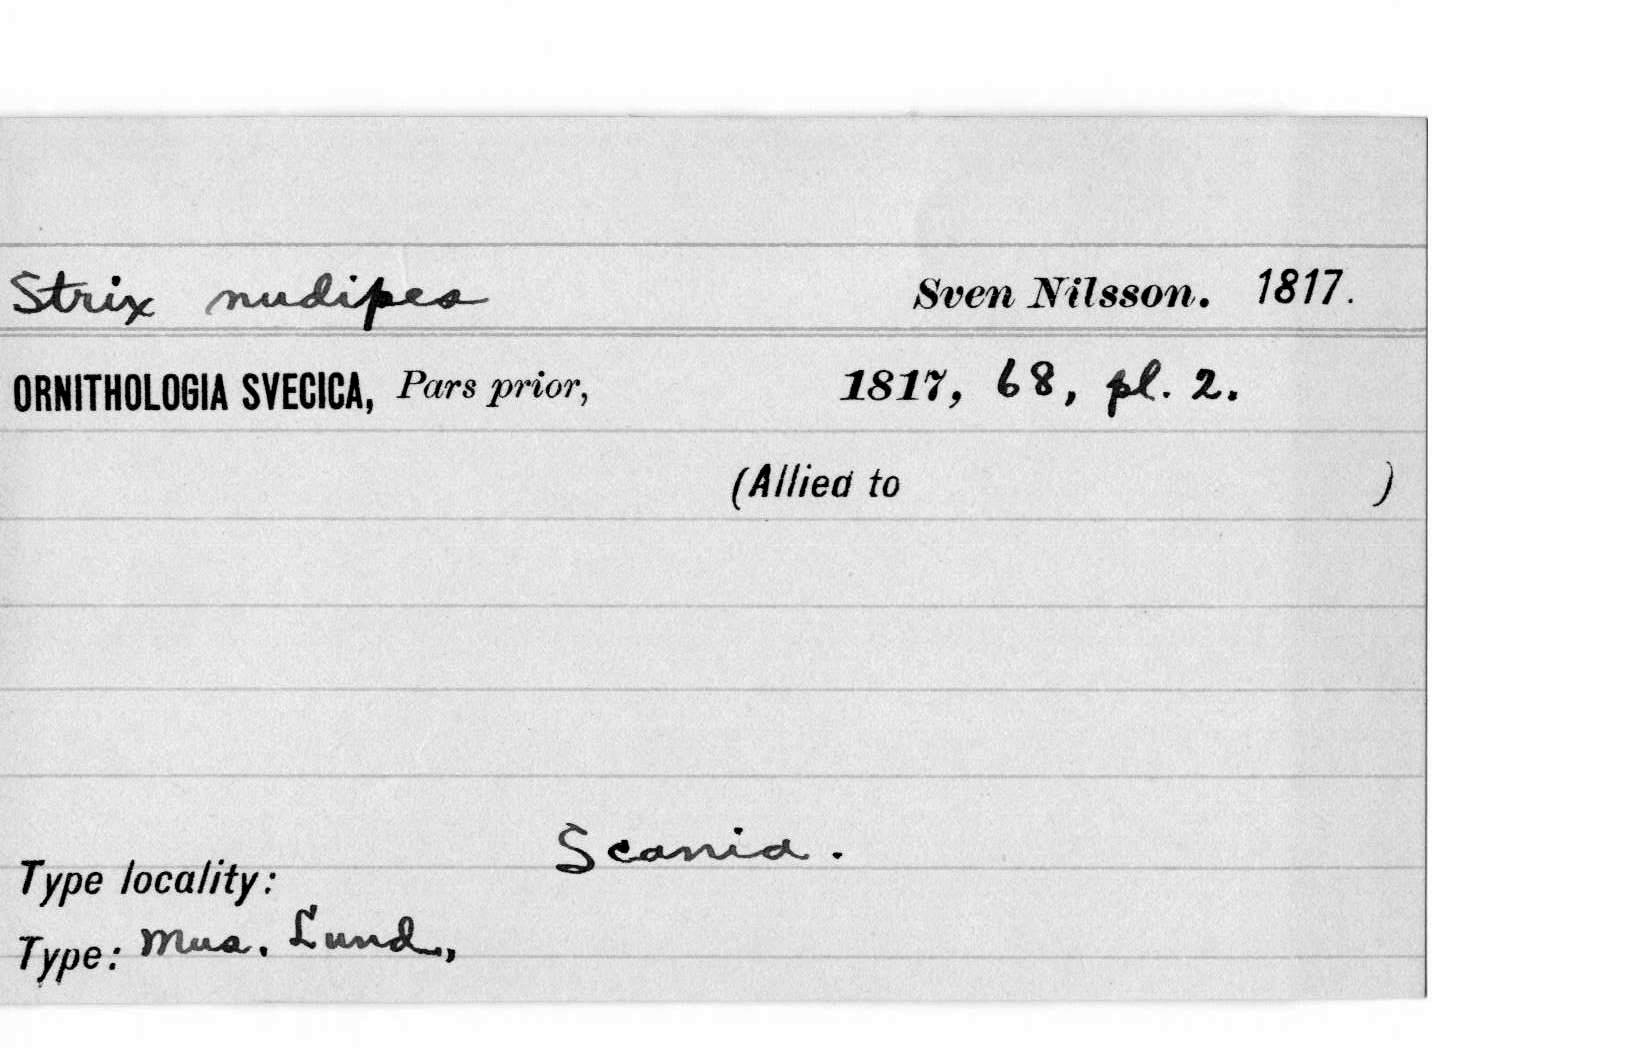 Strix nudipes Sven Nilsson. 1817.
ORNITHOLOGIA SVECICA, Pars prior, 1817, 68, pl. 2.
(Allied to )
Scania.
Type locality:
Type: Mus. Lund.,